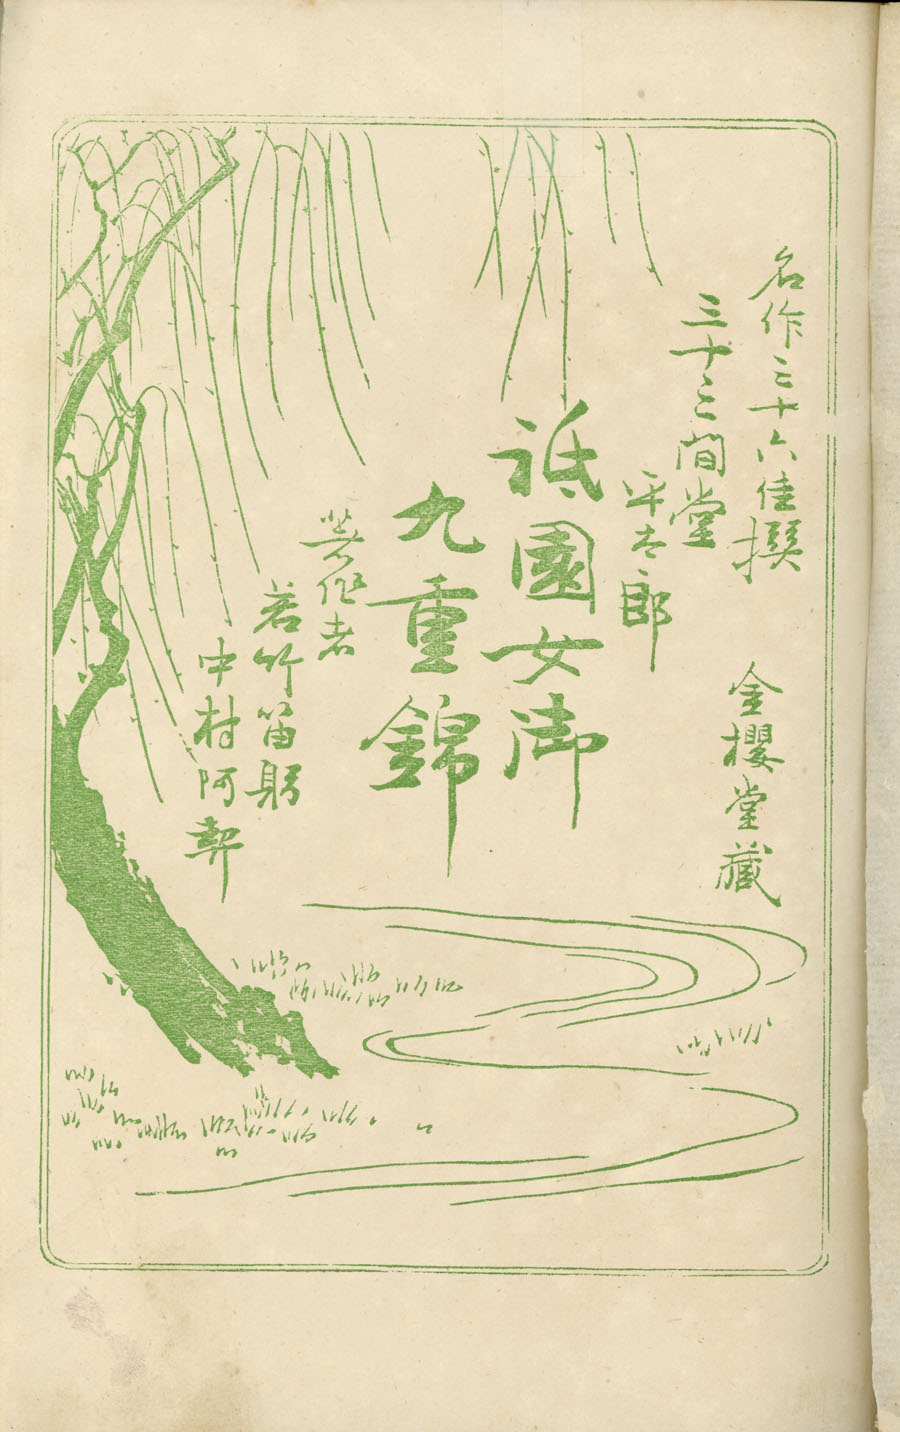 名作三十六佳撰
金櫻堂藏
三十三間堂
平太郎
祇園女御
九重錦
著作者
若竹笛躬
中村阿契